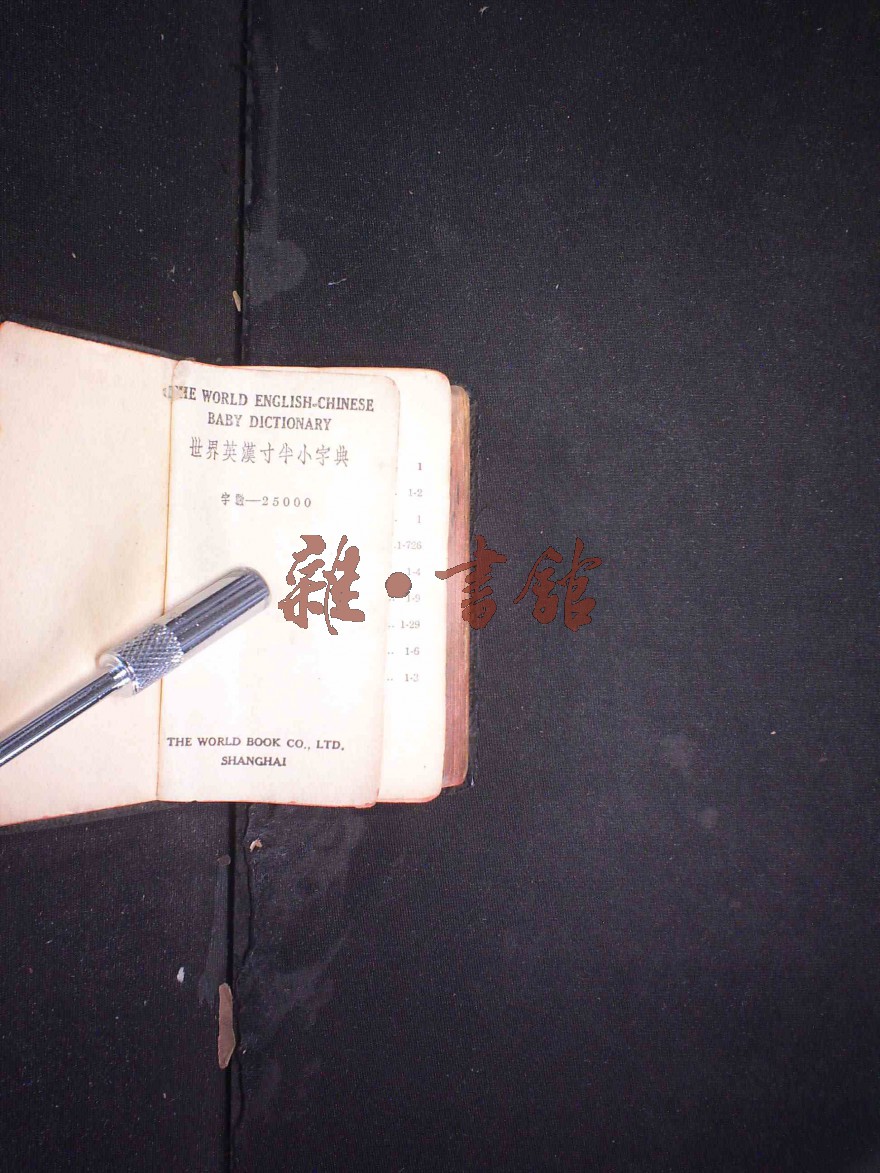 THE WORLD ENGLISH-CHINESE
BABY DICTIONARY
世界英漢寸半小字典
字數—25000
THE WORLD BOOK CO., LTD.
SHANGHAI
1
1-2
1
1-726
1-4
1-9
1-29
1-6
1-3
雜·書館